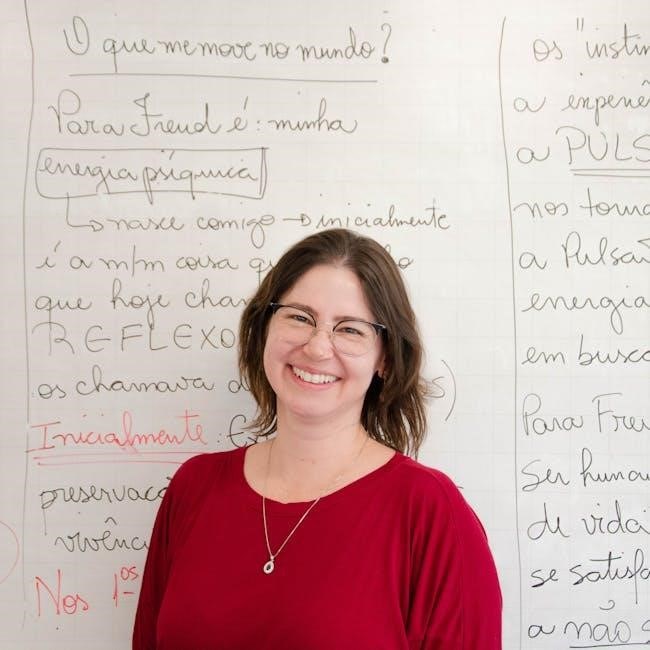 O que me move no mundo?
Para Freud é: minha
energia psíquica
↳ nasce comigo → inicialmente
é a mpm coisa
que hoje
REFLEXO
os chamava
Inicialmente:
preservaçã
vivênci
Nos 1os
os "instin
a experiê
a PULS
nos torna
a Pulsã
energia
em busca
Para Freu
Ser human
de vida
se satisfa
a não s